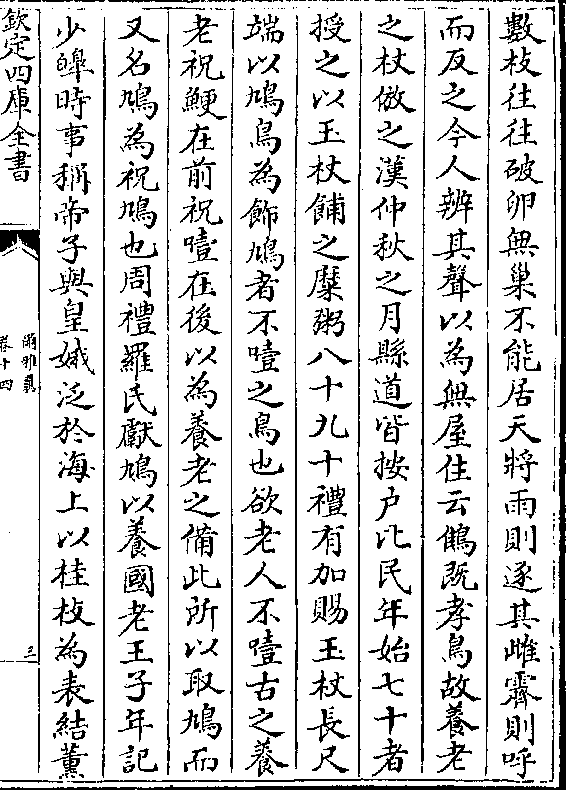 數枝往往破卵無巢不能居天將雨則逐其雌霽則呼
而反之今人辨其聲以為無屋住云鶻既孝鳥故養老
之杖倣之漢仲秋之月縣道皆按户比民年始七十者
授之以玉杖餔之糜粥八十九十禮有加賜玉杖長尺
端以鳩鳥為飾鳩者不噎之鳥也欲老人不噎古之養
老祝鯁在前祝噎在後以為養老之備此所以取鳩而
又名鳩為祝鳩也周禮羅氏獻鳩以養國老王子年記
少皥時事稱帝子與皇娥泛於海上以桂枝為表結薰
欽定四庫全書
爾雅翼
卷十四
三